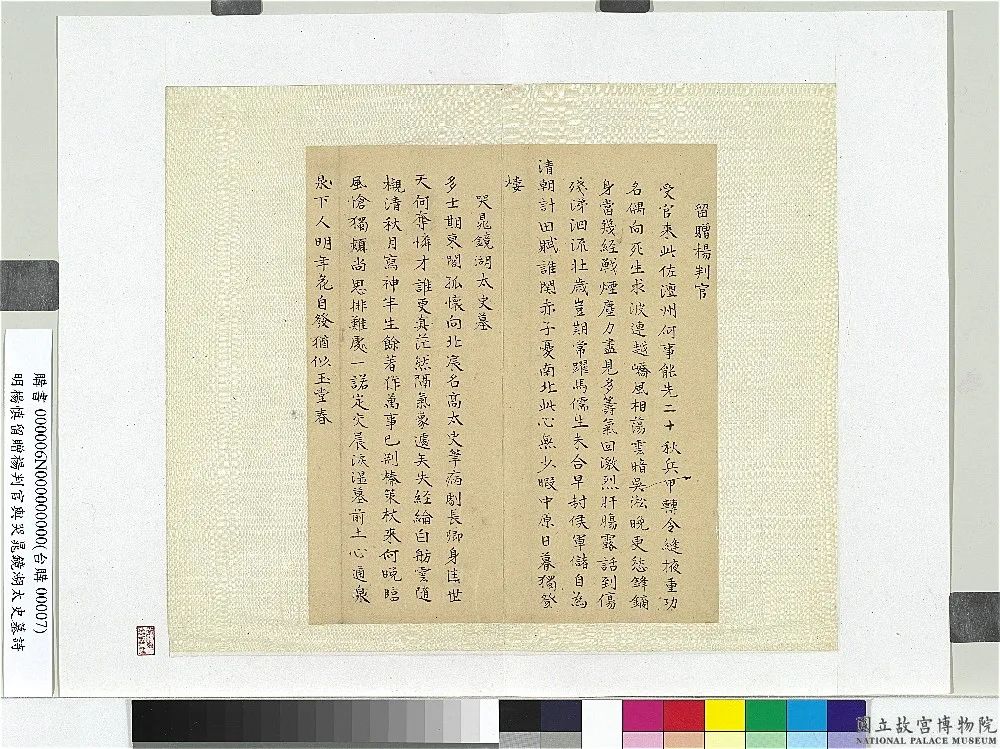 留贈楊判官
受官來此佐澶州何事能先二十秋兵甲轉令縫掖重功
名偶向死生求波連越嶠風相蕩雲暗吳淞晚更愁鋒鏑
身當幾經戰煙塵力盡見多籌氣回激烈肝腸露話到傷
殘涕泗流壯歲豈期常躍馬儒生未合早封侯軍儲自為
清朝計田賦誰關赤子憂南北此心無少暇中原日暮獨登
樓
哭晁鏡湖太史墓
多士期東閣孤懷向北宸名高太史筆病劇長卿身法世
天何奪憐才誰更真茫然隔氣象遽矣失經綸白舫雲隨
櫬清秋月寫神半生餘著作萬事已荊榛策杖來何晚臨
風愴獨頻尚思排難處一諾定交辰淚濕墓前土心通泉
泉下人明年花自發猶似玉堂春
購書 000006N000000000(台購 00007)
明楊樞留贈楊判官與哭晁鏡湖太史墓詩
國立故宮博物院
NATIONAL PALACE MUSEUM